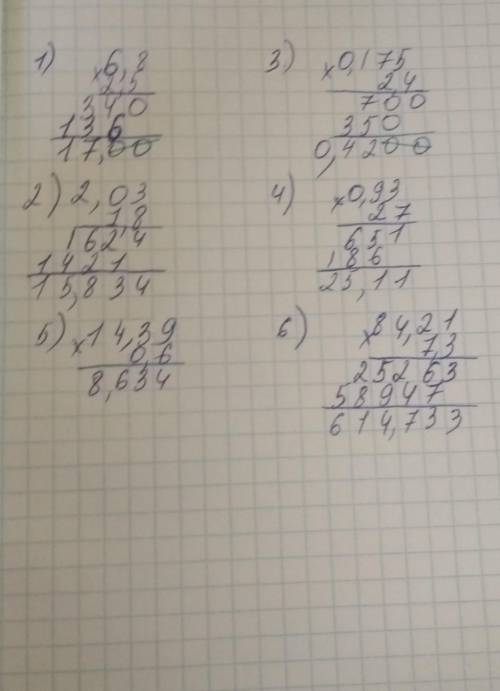 1) × 6,8
2,5
340
136
17,00
2) 2,03
7,8
1624
1421
15,834
5) × 14,39
0,6
8,634
3) × 0,175
2,4
700
350
0,4200
4) × 0,93
27
651
186
25,11
6) × 84,21
7,3
25263
58947
614,733